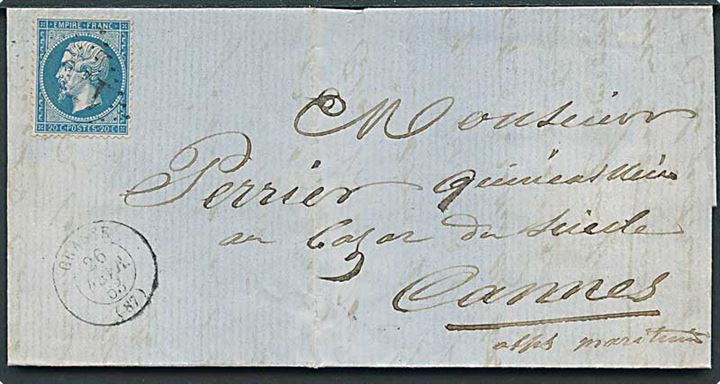 EMPIRE FRANC
20 C POSTES 20 C
Monsieur
Perrier quincaillier
au Bazar du Siècle
Cannes
alpes maritimes
GRASSE
(87)